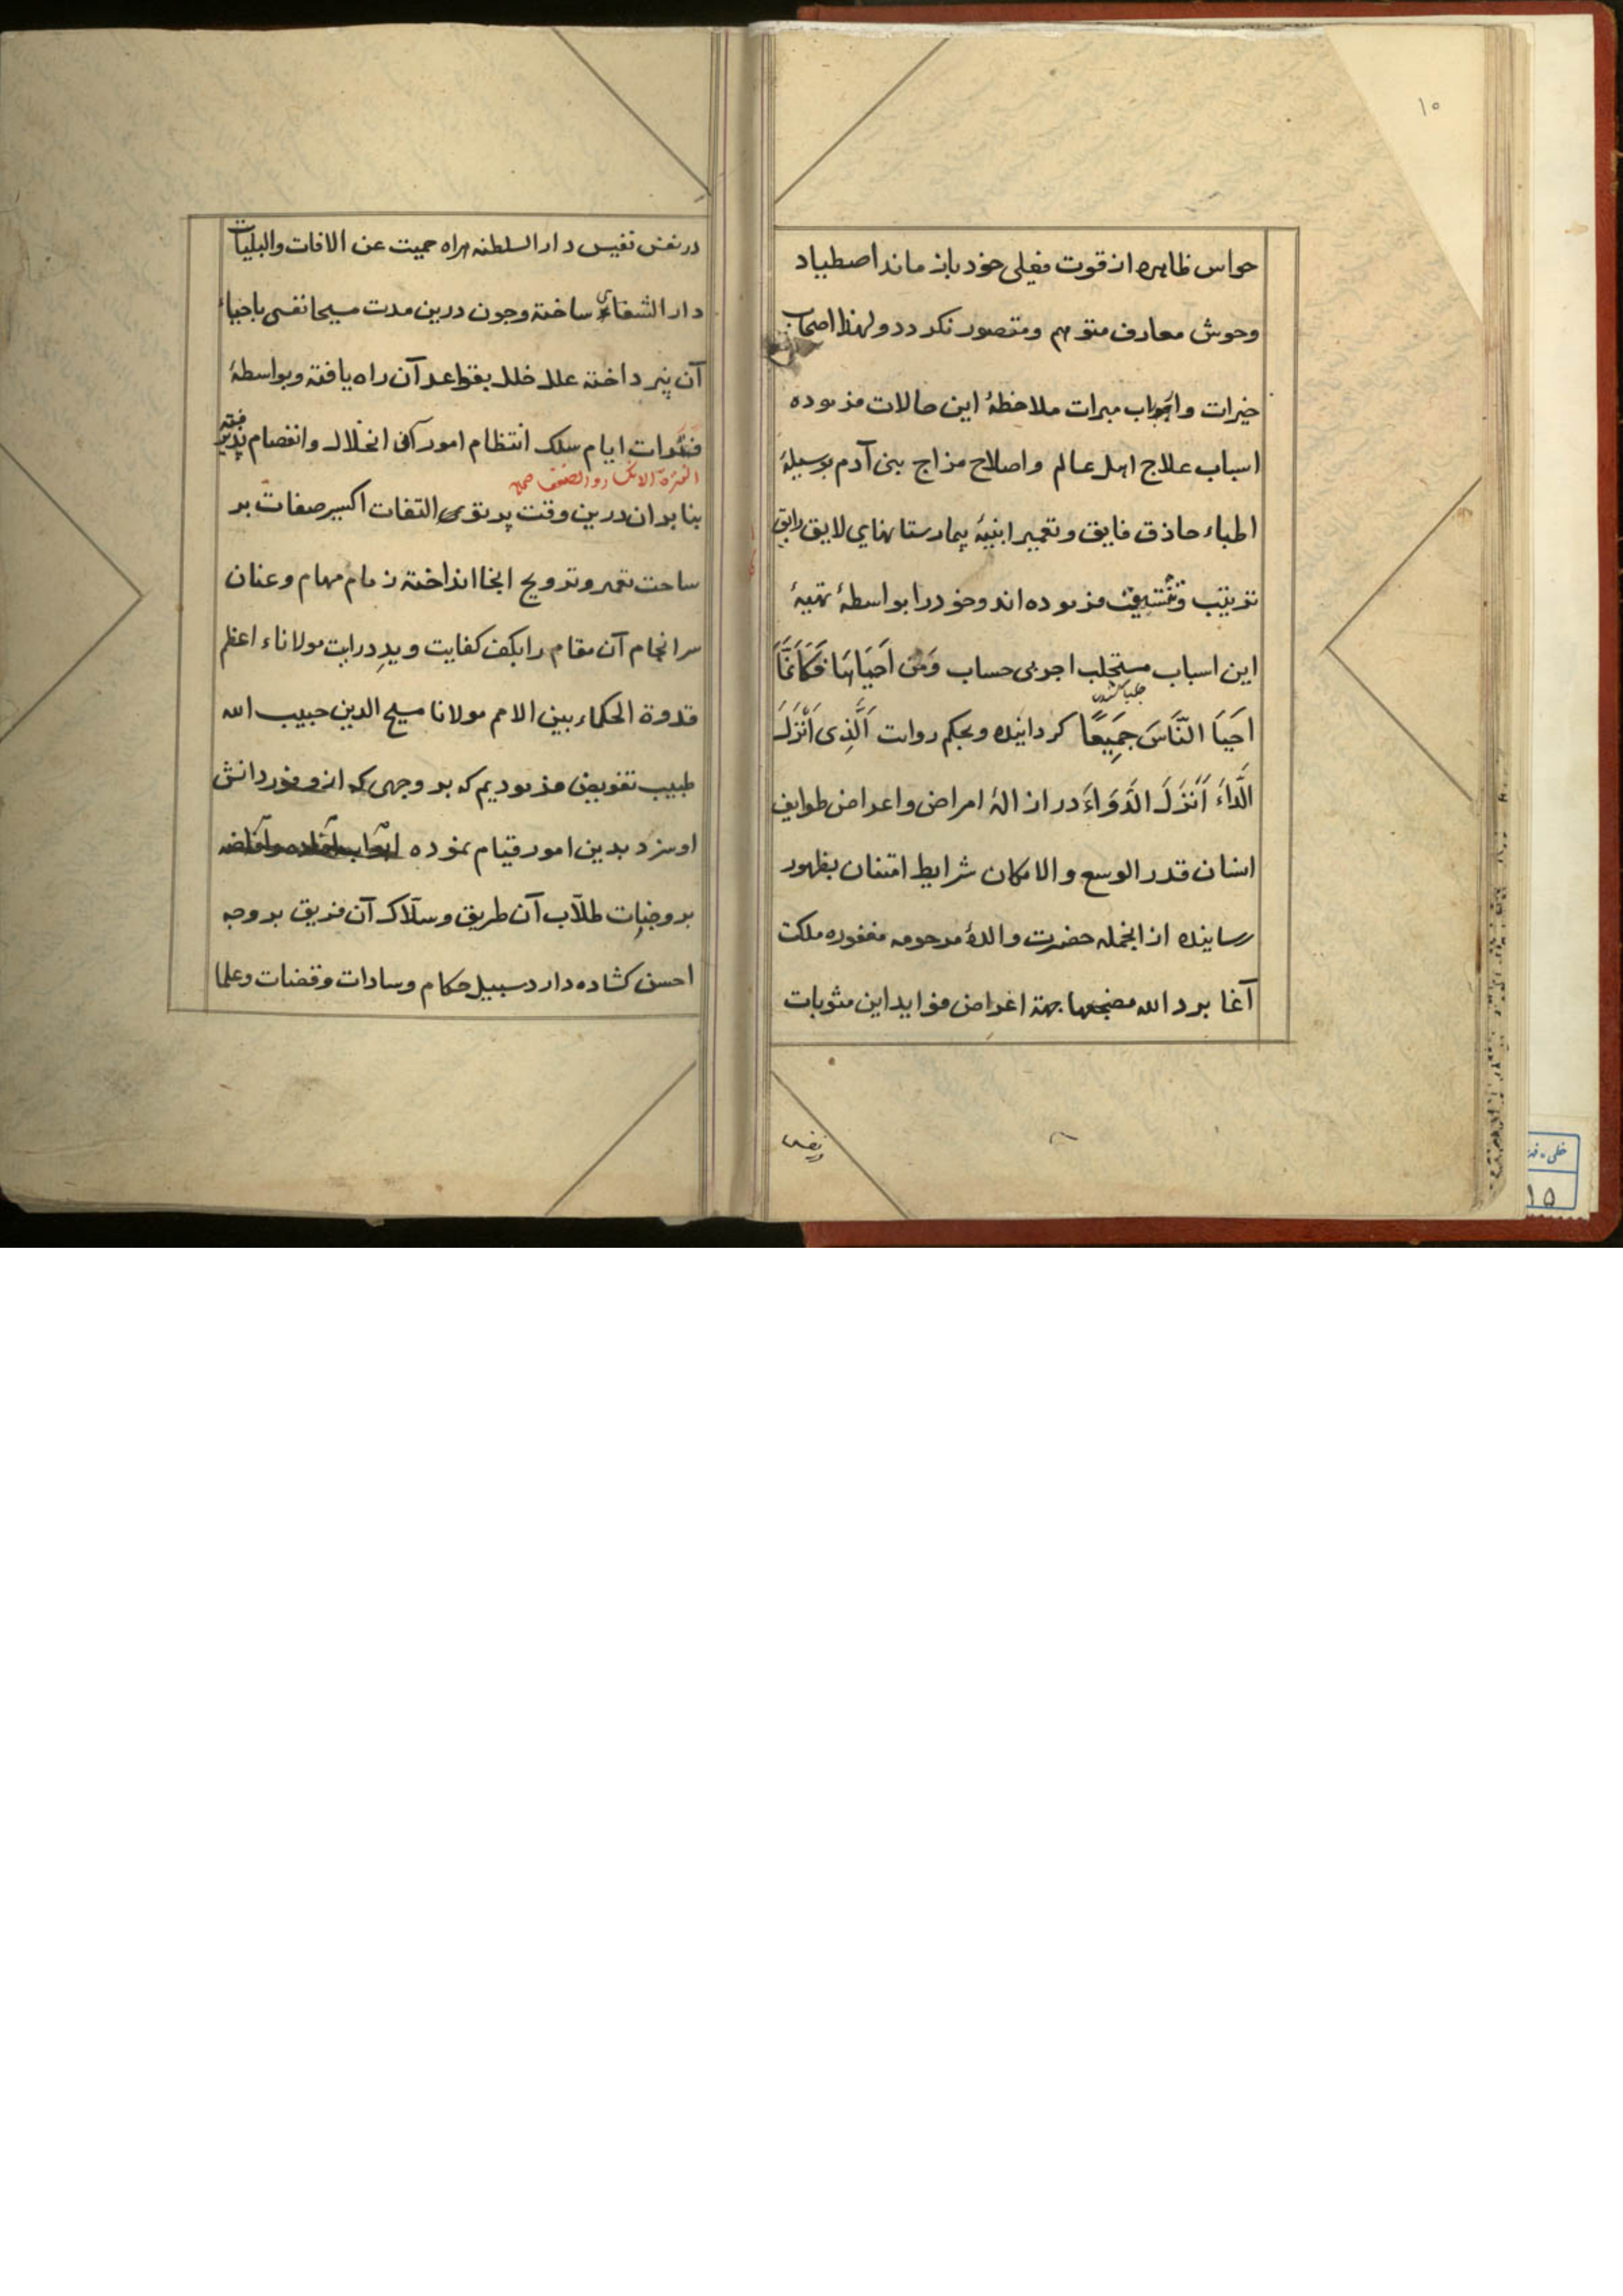 ۱۰
حواس ظاهره از قوت فعلی خود باز ماند اصطیاد
وحوش معارف متوهم و متصور نکردد و لهذا اصحاب
خیرات و ارباب مبرات ملاحظهٔ این حالات فرموده
اسباب علاج اهل عالم و اصلاح مزاج بنی آدم بوسیلهٔ
اطباء حاذق فایق و تعمیر ابنیهٔ بیمارستانهای لایق رایق
ترتیب و تنسیق فرموده اند و خود را بواسطهٔ تهیهٔ
این اسباب مستجلب اجر بی حساب وَمَن اَحیَاهَا فَکَاَنَّمَا
اَحیَا النَّاسَ جَمِیعًا کردانیده و بحکم روایت اَلَّذِی اَنْزَلَ
الَّداءَ اَنزَلَ الدَّوَاءَ در ازالهٔ امراض و اعراض طوایف
انسان قدر الوسع و الامکان شرایط امتنان بظهور
رسانیده از انجمله حضرت والدهٔ مرحومه مغفوره ملکت
آغا برد الله مضجعها بهة اغراض فواید این مثوبات
در نفس
در نفس نفیس دار السلطنه هراه حمیت عن الافات والبلیات
دار الشفاء ساخته و چون درین مدت مسیحا نفسی باحیاء
آن نپرداخته علل خلل بقواعد آن راه یافته و بواسطهٔ
فترات ایام سلک انتظام امور آن انحلال و انفصام پذیرفته
بنا بر ان درین وقت پرتوی التفات اکسیر صفات بر
ساحت تعمیر و ترویج انجا انداخته زمام مهام و عنان
سرانجام آن مقام را بکف کفایت و یدِ درایت مولاناء اعظم
قدوة الحکماء بین الامم مولانا مسیح الدین حبیب الله
طبیب تفویض فرمودیم که بر وجهی که از وفور دانش
او سزد بدین امور قیام نموده ابواب افاده و افاضه
بر وجنات طلّاب آن طریق و سلّاک آن فریق بر وجه
احسن کشاده دارد سبیل حکام و سادات و قضات و علما
خطی - فه
۱۵